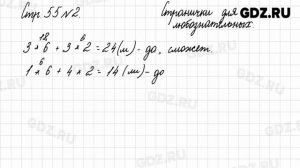 Стр. 55 № 2.
Странички для любознательных
GDZ.RU
18 6
3 × 6 + 3 × 2 = 24 (м) - до, сможет.
1 × 6 + 4 × 2 = 14 (м) - до
GDZ.RU